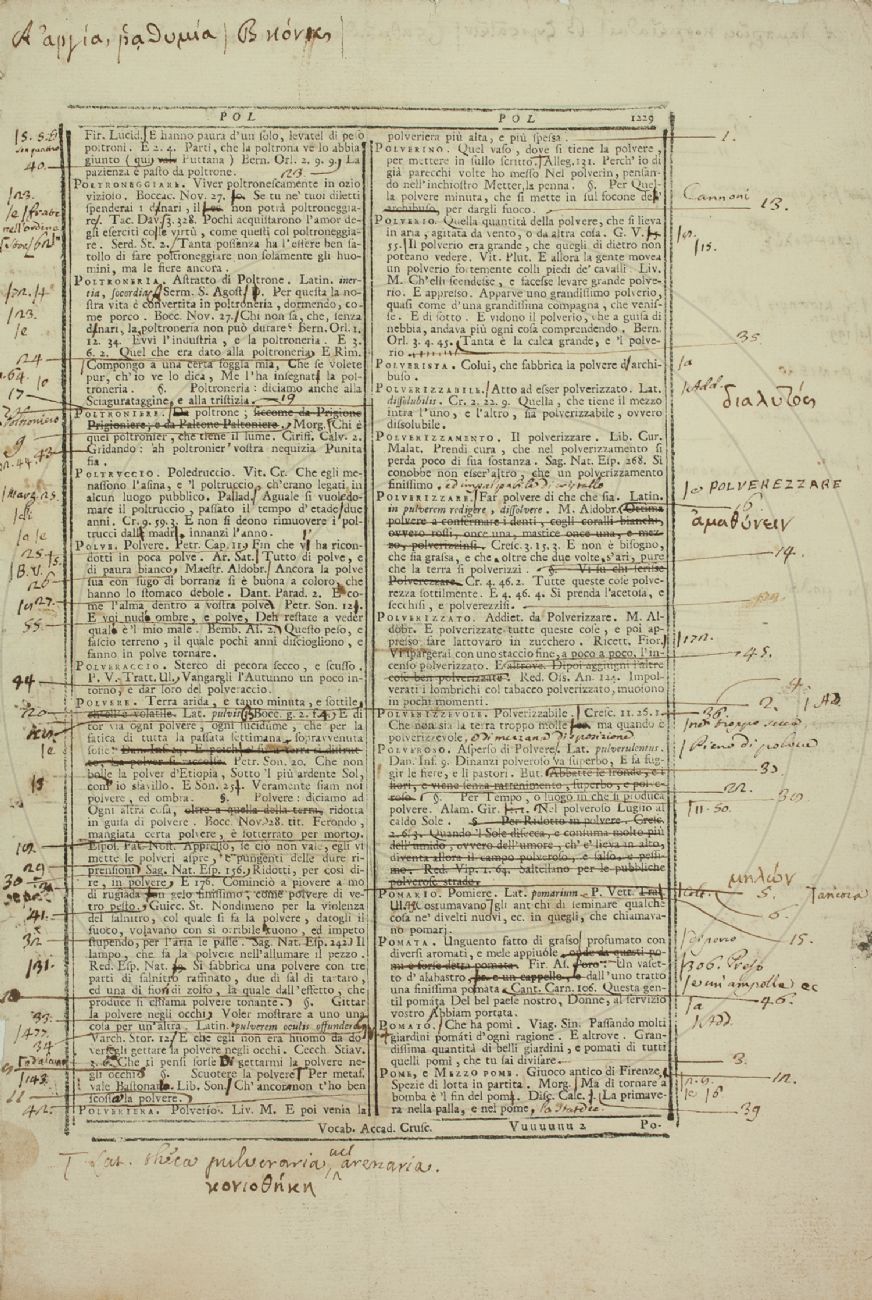 Α ἀργία, ῥαθυμία | Β κόνις
POL
POL
1229
Fir. Lucid. E hanno paura d'un solo, levatel di peso
poltroni. E 2. 4. Parti, che la poltrona ve lo abbia
giunto ( qui Puttana ) Bern. Orl. 2. 9. 9. La
pazienza è pasto da poltrone.
POLTRONEGGIARE. Viver poltronescamente in ozio
viziolo. Boccac. Nov. 27. Se tu ne' tuoi diletti
spenderai i danari, il non potrà poltroneggia-
re. Tac. Dav. 3. 328. Pochi acquistarono l'amor de-
gli eserciti colle virtù, come questi col poltroneggia-
re. Serd. St. 2. Tanta possenza ha l'essere ben sa-
tollo di fare poltroneggiare non solamente gli huo-
mini, ma le fiere ancora.
POLTRONERIA. Astratto di Poltrone. Latin. iner-
tia, socordia. Serm. S. Agost. Per questa la no-
stra vita è convertita in poltroneria, dormendo, co-
me porco. Bocc. Nov. 27. Chi non sa, che, senza
danari, la poltroneria non può durare? Bern. Orl. 1.
12. 34. Evvi l'industria, e la poltroneria. E 3.
6. 2. Quel che era dato alla poltroneria. E Rim.
Compongo a una certa foggia mia, Che se volete
pur, ch'io ve lo dica, Me l'ha insegnata la pol-
troneria. §. Poltroneria: diciamo anche alla
Sciagurataggine, e alla tristizia. 19
POLTRONIERE. Da poltrone; siccome da Prigione
Prigioniere, e da Paltone Paltoniere. Morg. Chi è
quel poltronier, che tiene il lume. Ciriff. Calv. 2.
Gridando: ah poltronier vostra nequizia Punita
fia.
POLTRUCCIO. Poledruccio. Vit. Cr. Che egli me-
nassono l'asina, e 'l poltruccio, ch'erano legati in
alcun luogo pubblico. Pallad. Aguale si vuole do-
mare il poltruccio, passato il tempo d'etade due
anni. Cr. 9. 59. 3. E non si deono rimuovere i pol-
trucci dalla madre, innanzi l'anno.
POLVE. Polvere. Petr. Cap. 11. Fin che v' ha ricon-
dotti in poca polve. Ar. Sat. Tutto di polve, e
di paura bianco. Maestr. Aldobr. Ancora la polve
sua con sugo di borrana si è buona a coloro, che
hanno lo stomaco debole. Dant. Parad. 2. E co-
me l'alma dentro a vostra polve. Petr. Son.
E voi nudo ombre, e polve, Deh restate a veder
quale è 'l mio male. Bemb. As. 2. Questo peso, e
fascio terreno, il quale pochi anni disciogliono, e
fanno in polve tornare.
POLVERACCIO. Sterco di pecora secco, e scusso.
P. V. Tratt. Ul. Vangargli l'Autunno un poco in-
torno, e dar loro del polveraccio.
POLVERE. Terra arida, e tanto minuta, e sottile,
ch'ell'è volatile. Lat. pulvis. Bocc. g. 2. f. 4. E di
tor via ogni polvere, ogni sucidume, che per la
fatica di tutta la passata settimana, sopravvenuta
fosse. Dan. Inf. 21.
Petr. Son. 20. Che non
bolle la polver d'Etiopia, Sotto 'l più ardente Sol,
com'io sfavillo. E Son. 254. Veramente siam noi
polvere, ed ombra. §. Polvere: diciamo ad
Ogni altra cosa, oltre a quella della terra, ridotta
in guisa di polvere. Bocc. Nov. 28. tit. Ferondo,
mangiata certa polvere, è sotterrato per morto.
Espos. Pat. Nost. Appresso, se ciò non vale, egli vi
mette le polveri aspre, e pungenti delle dure ri-
prensioni. Sag. Nat. Esp. 156. Ridotti, per così di-
re, in polvere. E 176. Cominciò a piovere a mo'
di rugiada un gelo finissimo, come polvere di ve-
tro pesto. Guicc. St. Nondimeno per la violenza
del salnitro, col quale si fa la polvere, datogli il
fuoco, volavano con sì orribile tuono, ed impeto
stupendo, per l'aria le palle. Sag. Nat. Esp. 242. Il
lampo, che fa la polvere nell'allumare il pezzo.
Red. Esp. Nat. Si fabbrica una polvere con tre
parti di salnitro raffinato, due di sal di tartaro,
ed una di fiori di zolfo, la quale dall'effetto, che
produce si chiama polvere tonante. §. Gittar
la polvere negli occhi. Voler mostrare a uno una
cosa per un'altra. Latin. pulverem oculis offundere.
Varch. Stor. 12. E che egli non era huomo da do-
versegli gettare la polvere negli occhi. Cecch. Stiav.
3. 6. Che ti pensi forse Di gettarmi la polvere ne-
gli occhi? §. Scuotere la polvere. Per metaf.
vale Bastonare. Lib. Son. Ch' ancor non t'ho ben
scossa la polvere.
POLVERIERA. Polverio. Liv. M. E poi venia la
polveriera più alta, e più spessa.
POLVERINO. Quel vaso, dove si tiene la polvere,
per mettere in sullo scritto. Alleg. 131. Perch'io di
già parecchi volte ho messo Nel polverin, pensan-
do nell'inchiostro Metter, la penna. §. Per Quel-
la polvere minuta, che si mette in sul focone de'
archibuso, per dargli fuoco.
POLVERIO. Quella quantità della polvere, che si lieva
in aria, agitata da vento, o da altra cosa. G. V.
55. Il polverio era grande, che quegli di dietro non
poteano vedere. Vit. Plut. E allora la gente movea
un polverio fortemente colli piedi de' cavalli. Liv.
M. Ch'elli scendesse, e facesse levare grande polve-
rio. E appresso. Apparve uno grandissimo polverio,
quasi come d'una grandissima compagna, che venis-
se. E di sotto. E vidono il polverio, che a guisa di
nebbia, andava più ogni cosa comprendendo. Bern.
Orl. 3. 4. 45. Tanta è la calca grande, e 'l polve-
rio
POLVERISTA. Colui, che fabbrica la polvere d'archi-
buso.
POLVERIZZABILE. Atto ad esser polverizzato. Lat.
dissolubilis. Cr. 2. 22. 9. Quella, che tiene il mezzo
intra l'uno, e l'altro, sia polverizzabile, ovvero
dissolubile.
POLVERIZZAMENTO. Il polverizzare. Lib. Cur.
Malat. Prendi cura, che nel polverizzamento si
perda poco di sua sostanza. Sag. Nat. Esp. 268. Si
conobbe non esser'altro, che un polverizzamento
finissimo
POLVERIZZARE. Far polvere di che che sia. Latin.
in pulverem redigere, dissolvere. M. Aldobr. Ottima
polvere a confermare i denti, cogli coralli bianchi,
ovvero rossi, once una, mastice once una, e mez-
zo, polverizzinsi. Cresc. 3. 15. 3. E non è bisogno,
che sia grassa, e che oltre che due volte s'ari, pure
che la terra si polverizzi. §. Vi fu chi scrisse
Polverezzare. Cr. 4. 46. 2. Tutte queste cose polve-
rezza sottilmente. E 4. 46. 4. Si prenda l'acetosa, e
secchisi, e polverezzisi.
POLVERIZZATO. Addiet. da Polverizzare. M. Al-
dobr. E polverizzate tutte queste cose, e poi ap-
presso fare lattovaro in zucchero. Ricett. Fior.
Vi spargerai con uno staccio fine, a poco a poco, l'in-
censo polverizzato. E altrove. Dipoi aggiugni l'altre
cose ben polverizzate. Red. Oss. An. 124. Impol-
verati i lombrichi col tabacco polverizzato, muoiono
in pochi momenti.
POLVERIZZEVOLE. Polverizzabile. Cresc. 11. 26. 1.
Che non sia la terra troppo molle, ma quando è
polverizzevole, o di mezzana disposizione
POLVEROSO. Asperso di Polvere. Lat. pulverulentus.
Dan. Inf. 9. Dinanzi polveroso va superbo, E fa fug-
gir le fiere, e li pastori. But. Abbatte le fronde, e i
fiori, e viene senza rattenimento, superbo, e polve-
roso. §. Per Tempo, o luogo in che si produca
polvere. Alam. Gir. Nel polveroso Luglio al
caldo Sole. §. Per Ridotto in polvere. Cresc.
2. 6. 3. Quando 'l Sole disecca, e consuma molto più
dell'umido, ovvero dell'umore, ch' e' lieva in alto,
diventa allora il campo polveroso, e falso, e pessi-
mo. Red. Vip. 1. 64. Saltellano per le pubbliche
polverose strade.
POMARIO. Pomiere. Lat. pomarium. P. Vett. Trat.
Ul. Costumavano gli antichi di seminare qualche
cosa ne' divelti nuovi, ec. in quegli, che chiamava-
no pomarj.
POMATA. Unguento fatto di grasso, profumato con
diversi aromati, e mele appiuole, onde da questi po-
mi e forse detta pomata. Fir. As. Un vaset-
to d'alabastro, pe. e un cappello, dall'uno tratto
una finissima pomata. Cant. Carn. 106. Questa gen-
til pomata Del bel paese nostro, Donne, al servizio
vostro Abbiam portata.
POMATO. Che ha pomi. Viag. Sin. Passando molti
giardini pomati d'ogni ragione. E altrove. Gran-
dissima quantità di belli giardini, e pomati di tutti
quelli pomi, che tu sai divisare.
POME, e MEZZO POME. Giuoco antico di Firenze,
Spezie di lotta in partita. Morg. Ma di tornare a
bomba è 'l fin del pome. Disc. Calc. La primave-
ra nella palla, e nel pome, la state
Vocab. Accad. Crusc.
Vuuuuuu 2
Po-
1.
Cannoni
13.
35.
Add.
διαλυτός
POLVEREZZARE
ἀμαθύνειν
14.
45.
troppo secca
Pieno di polvere
22.
μηλών
5.
ancora
6.
15.
46.
3.
39
Lat. theca pulveraria, vel arenaria.
κονιοθήκη